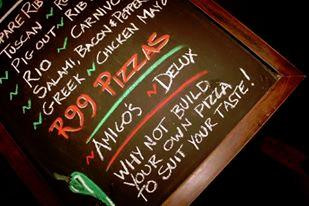 SPARE RIB
TUSCAN
PIG OUT
RIO
SALAMI, BACON & PEPPER
GREEK
RIB
CARNIVO
CHICKEN MAYO
R99 PIZZAS
AMIGO'S
DELUX
WHY NOT BUILD
YOUR OWN PIZZA
TO SUIT YOUR TASTE!